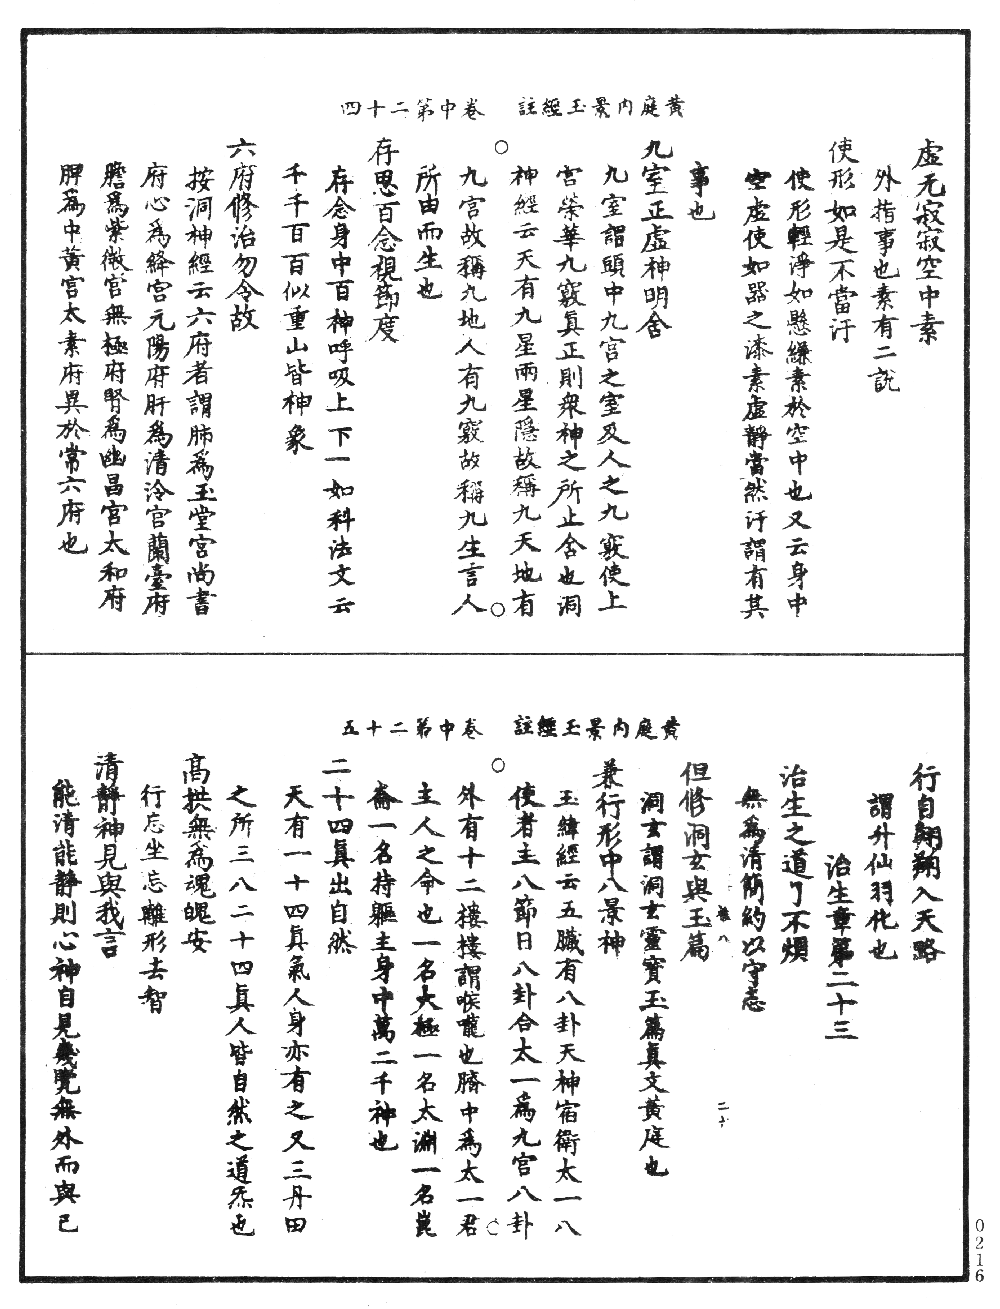 黃庭內景玉經註　卷中第二十四
虛无寂寂空中素
外指事也素有二說
使形如是不當汙
使形輕淨如懸縑素於空中也又云身中
空虛使如器之漆素虛靜當然汙謂有其
事也
九室正虛神明舍
九室謂頭中九宮之室及人之九竅使上
宮榮華九竅真正則衆神之所止舍也洞
神經云天有九星兩星隱故稱九天地有
九宮故稱九地人有九竅故稱九生言人
所由而生也
存思百念視節度
存念身中百神呼吸上下一如科法文云
千千百百似重山皆神象
六府修治勿令故
按洞神經云六府者謂肺爲玉堂宮尚書
府心爲絳宮元陽府肝爲清泠宮蘭臺府
膽爲紫微宮無極府腎爲幽昌宮太和府
脾爲中黃宮太素府異於常六府也
黃庭內景玉經註　卷中第二十五
行自翱翔入天路
謂升仙羽化也
治生章第二十三
治生之道了不煩
無爲清簡約以守志
但修洞玄與玉篇
洞玄謂洞玄靈寶玉篇真文黃庭也
兼行形中八景神
玉緯經云五臟有八卦天神宿衛太一八
使者主八節日八卦合太一爲九宮八卦
外有十二樓樓謂喉嚨也臍中爲太一君
主人之命也一名太極一名太淵一名崑
崙一名持軀主身中萬二千神也
二十四真出自然
天有一十四真氣人身亦有之又三丹田
之所三八二十四真人皆自然之道炁也
高拱無爲魂魄安
行忘坐忘離形去智
清靜神見與我言
能清能靜則心神自見幾覽無外而與已
0216